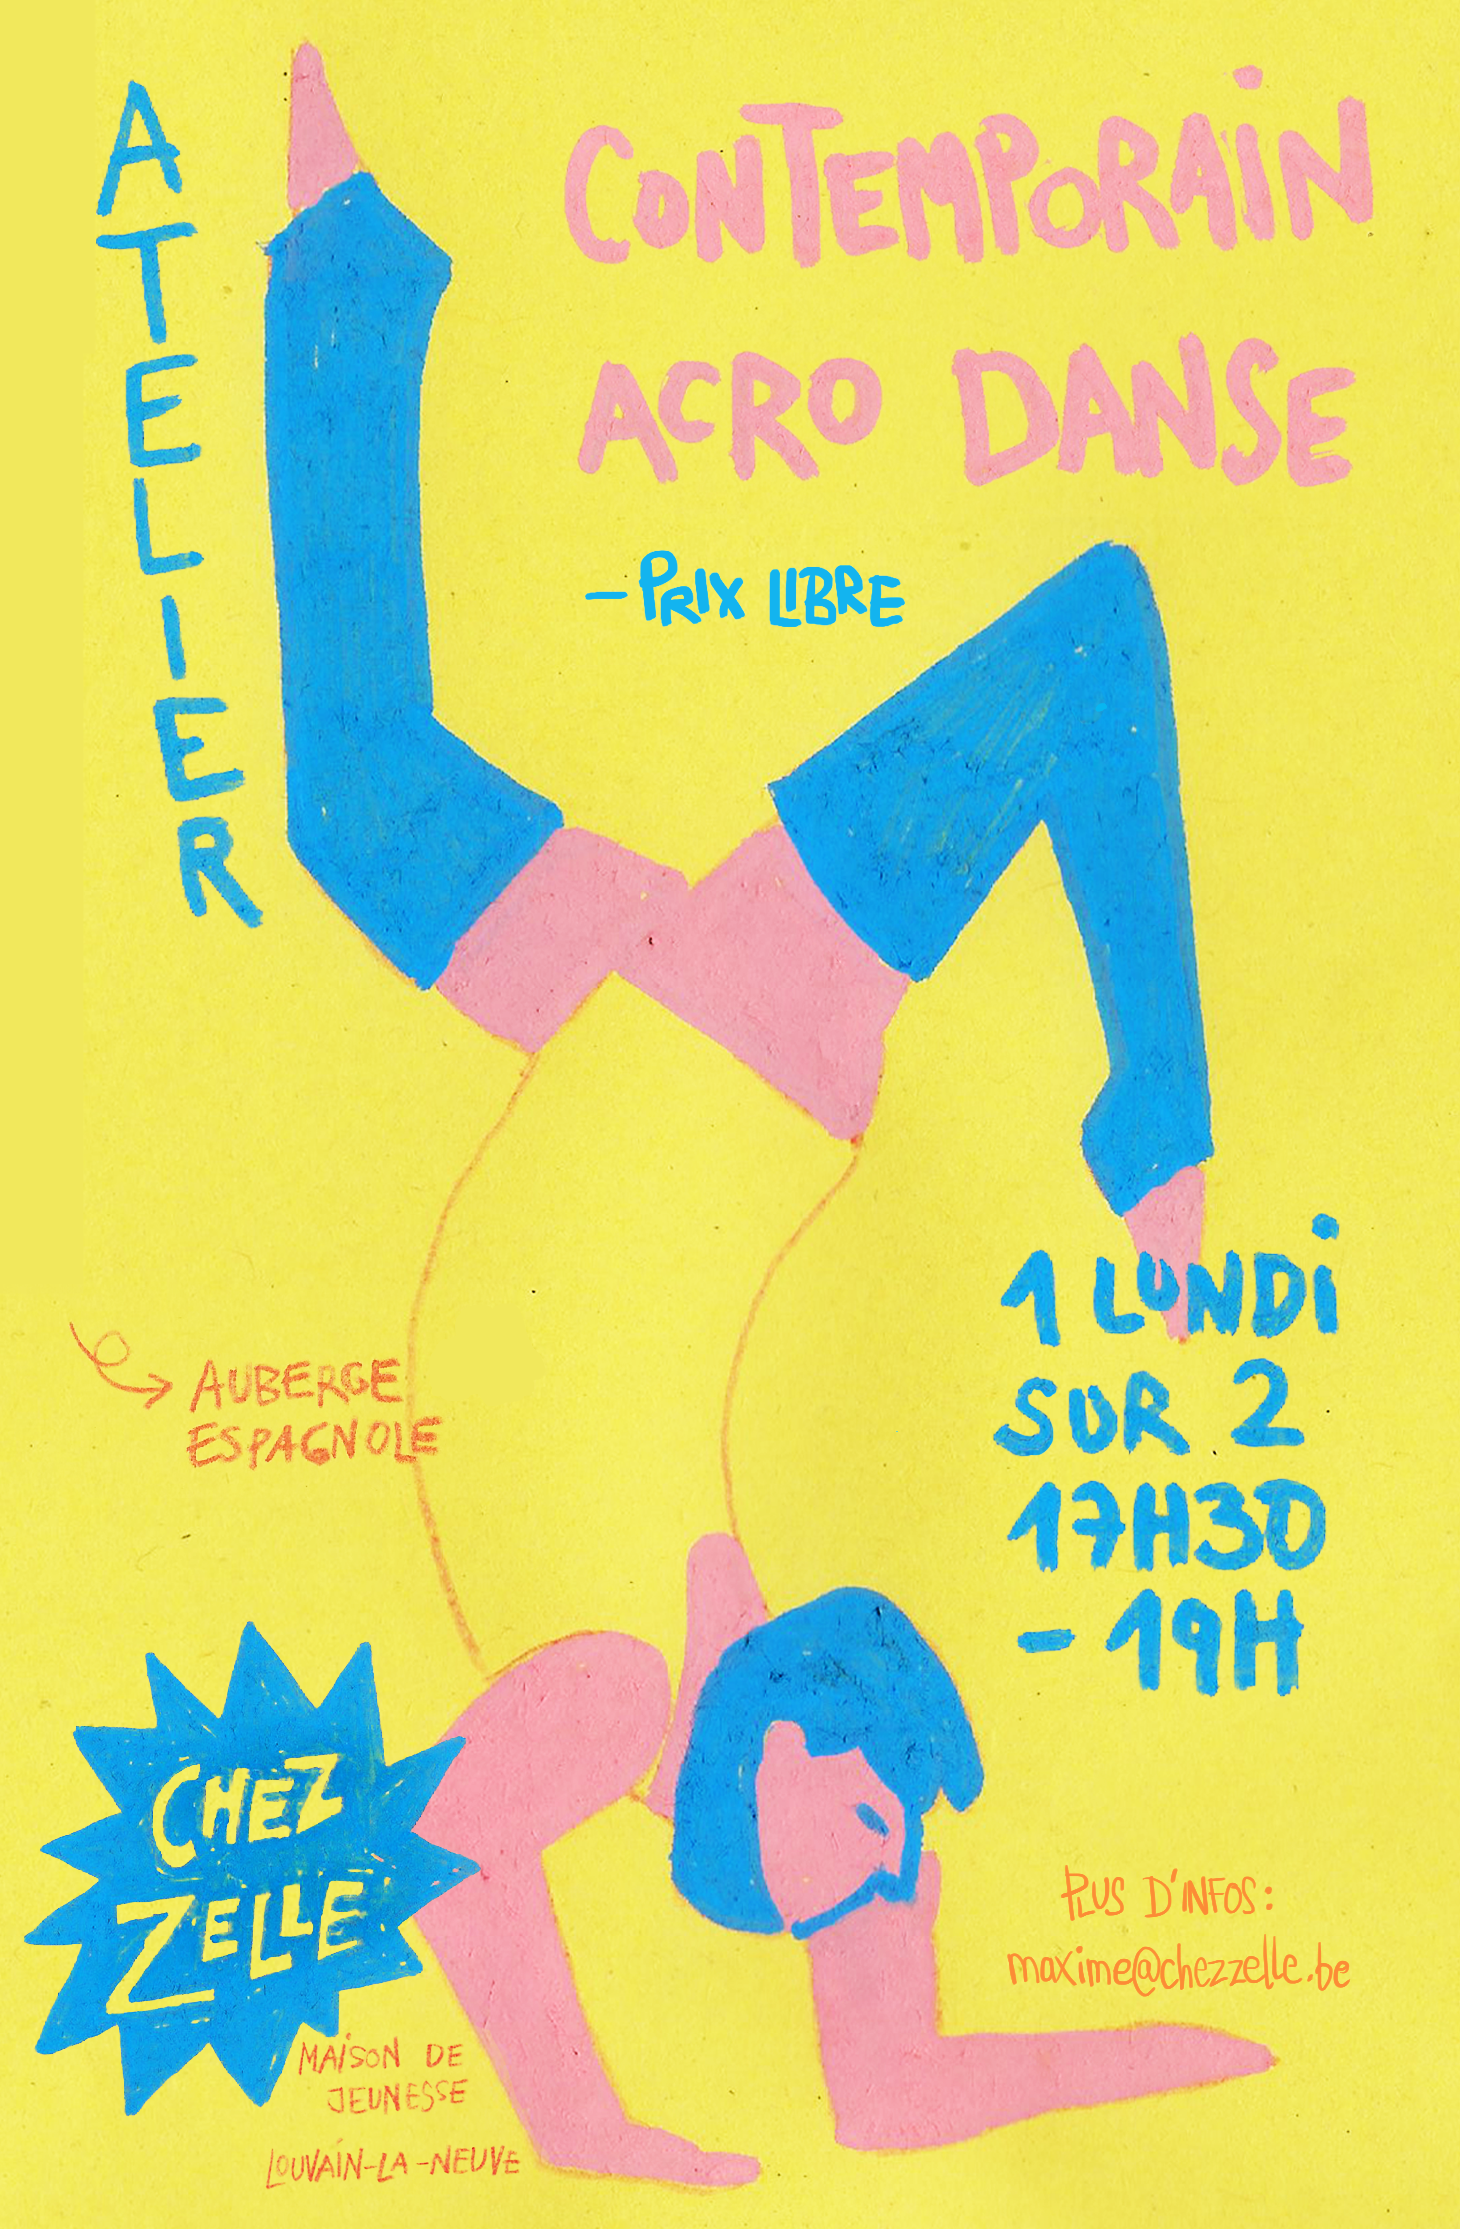 ATELIER
CONTEMPORAIN
ACRO DANSE
- PRIX LIBRE
1 LUNDI
SUR 2
17H30
- 19H
AUBERGE
ESPAGNOLE
CHEZ
ZELLE
MAISON DE
JEUNESSE
LOUVAIN-LA-NEUVE
PLUS D'INFOS:
maxime@chezzelle.be